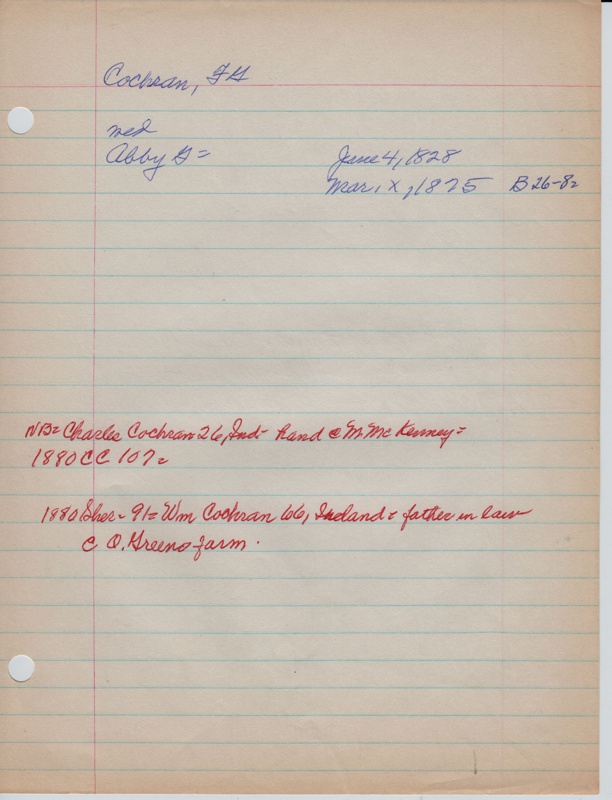 Cochran, F G
med
Abby G = June 4, 1828
Mar. x, 1825 B 26-82
NB = Charles Cochran 26, Ind- hand @ M. McKenney =
1880 CC 107 =
1880 Sher - 91 = Wm Cochran 66, Ireland = father in law
C O. Greeno farm.